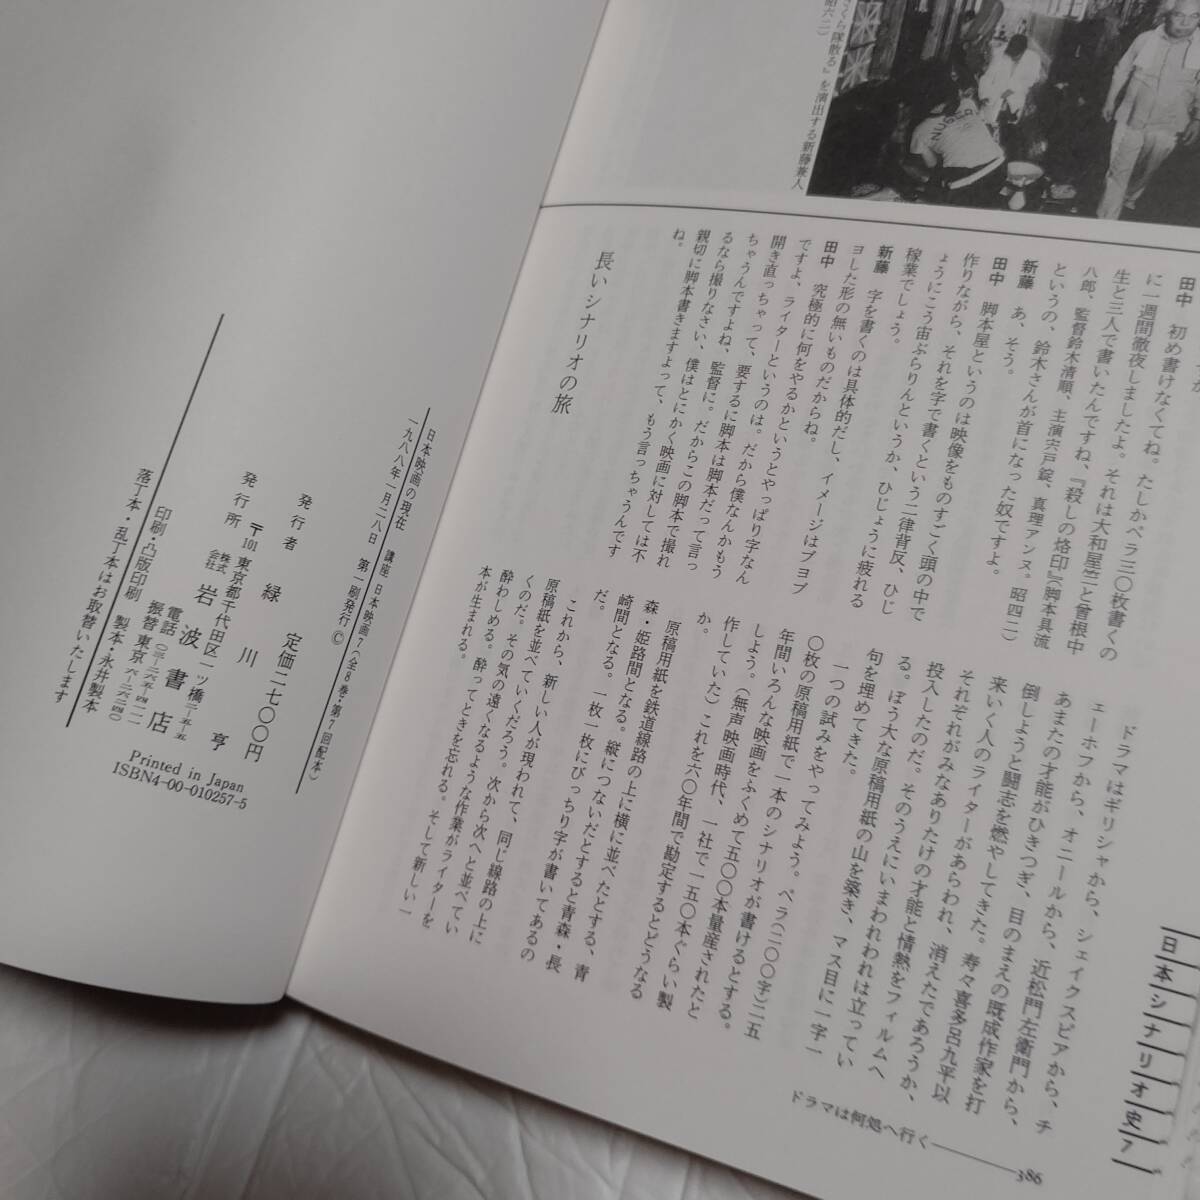 さくら隊散る』を演出する新藤兼人
昭六二)
田中　初め書けなくてね。たしかペラ三〇枚書くの
に一週間徹夜しましたよ。それは大和屋竺と曾根中
生と三人で書いたんですね、『殺しの烙印』(脚本具流
八郎、監督鈴木清順、主演宍戸錠、真理アンヌ。昭四二)
というの、鈴木さんが首になった奴ですよ。
新藤　あ、そう。
田中　脚本屋というのは映像をものすごく頭の中で
作りながら、それを字で書くという二律背反、ひじ
ょうにこう宙ぶらりんというか、ひじょうに疲れる
稼業でしょう。
新藤　字を書くのは具体的だし、イメージはブヨブ
ヨした形の無いものだからね。
田中　究極的に何をやるかというとやっぱり字なん
ですよ、ライターというのは。だから僕なんかもう
開き直っちゃって、要するに脚本は脚本だって言っ
ちゃうんですよね、監督に。だからこの脚本で撮れ
るなら撮りなさい、僕はとにかく映画に対しては不
親切に脚本書きますよって、もう言っちゃうんです
ね。
長いシナリオの旅
ドラマはギリシャから、シェイクスピアから、チ
ェーホフから、オニールから、近松門左衛門から、
あまたの才能がひきつぎ、目のまえの既成作家を打
倒しようと闘志を燃やしてきた。寿々喜多呂九平以
来いく人のライターがあらわれ、消えたであろうか、
それぞれがみなありたけの才能と情熱をフィルムへ
投入したのだ。そのうえにいまわれわれは立ってい
る。ぼう大な原稿用紙の山を築き、マス目に一字一
句を埋めてきた。
一つの試みをやってみよう。ペラ(二〇〇字)二五
〇枚の原稿用紙で一本のシナリオが書けるとする。
年間いろんな映画をふくめて五〇〇本量産されたと
しよう。(無声映画時代、一社で一五〇本ぐらい製
作していた)これを六〇年間で勘定するとどうなる
か。
原稿用紙を鉄道線路の上に横に並べたとする、青
森・姫路間となる。縦につないだとすると青森・長
崎間となる。一枚一枚にびっちり字が書いてあるの
だ。
これから、新しい人が現われて、同じ線路の上に
原稿紙を並べていくだろう。次から次へと並べてい
くのだ。その気の遠くなるような作業がライターを
酔わしめる。酔ってときを忘れる。そして新しい一
本が生まれる。
日本シナリオ史7
ドラマは何処へ行く——386
日本映画の現在　講座 日本映画7(全8巻・第7回配本)
一九八八年一月二八日　第一刷発行©
定価二七〇〇円
発行者　緑川　亨
〒101 東京都千代田区一ツ橋二-五-五
発行所　株式会社　岩波書店
電話(〇三-二六五-四一一一)
振替 東京 六-二六二四〇
印刷・凸版印刷　製本・永井製本
落丁本・乱丁本はお取替いたします
Printed in Japan
ISBN4-00-010257-5